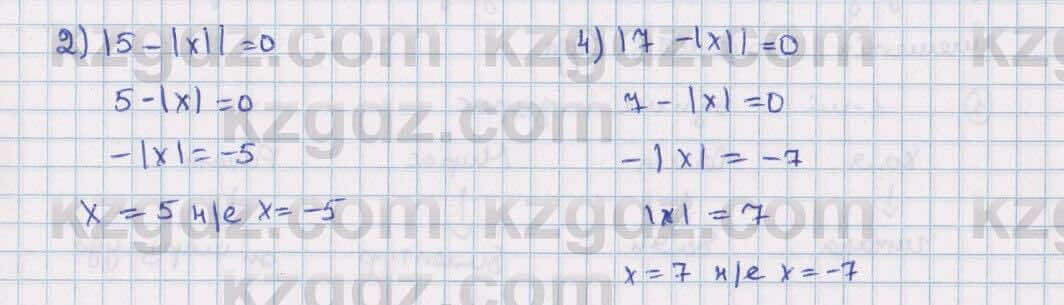 2) |5 - |x|| = 0
5 - |x| = 0
- |x| = -5
x = 5 н/е x = -5
4) |7 - |x|| = 0
7 - |x| = 0
- |x| = -7
|x| = 7
x = 7 н/е x = -7
kzgdz.com
kzgdz.com
kzgdz.com
kzgdz.com